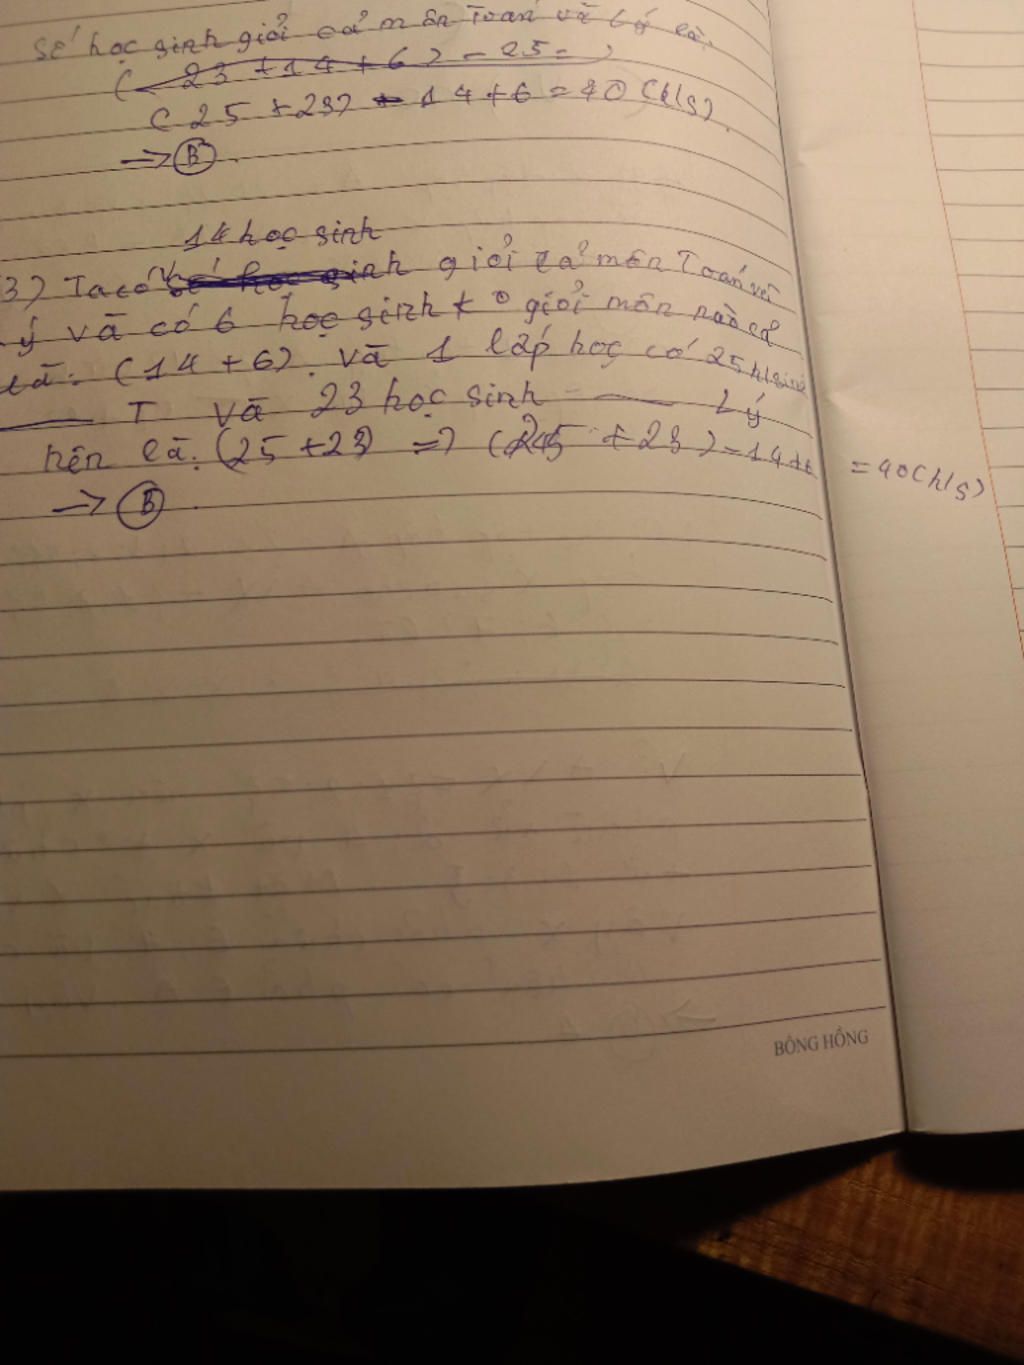 Số học sinh giỏi cả môn Toán và Lý là:
(23 + 14 + 6) - 25 =
(25 + 23) - 14 + 6 = 40 (h/s).
=> B.
14 học sinh
3) Ta có giỏi cả môn Toán và
Lý và có 6 học sinh k° giỏi môn nào cả
là: (14 + 6). và 1 lớp học có 25 h/sinh
—— T và 23 học sinh —— Lý
nên là: (25 + 23) => (25 + 23) - 14 + 6 = 40 (h/s)
-> B.
BÔNG HỒNG